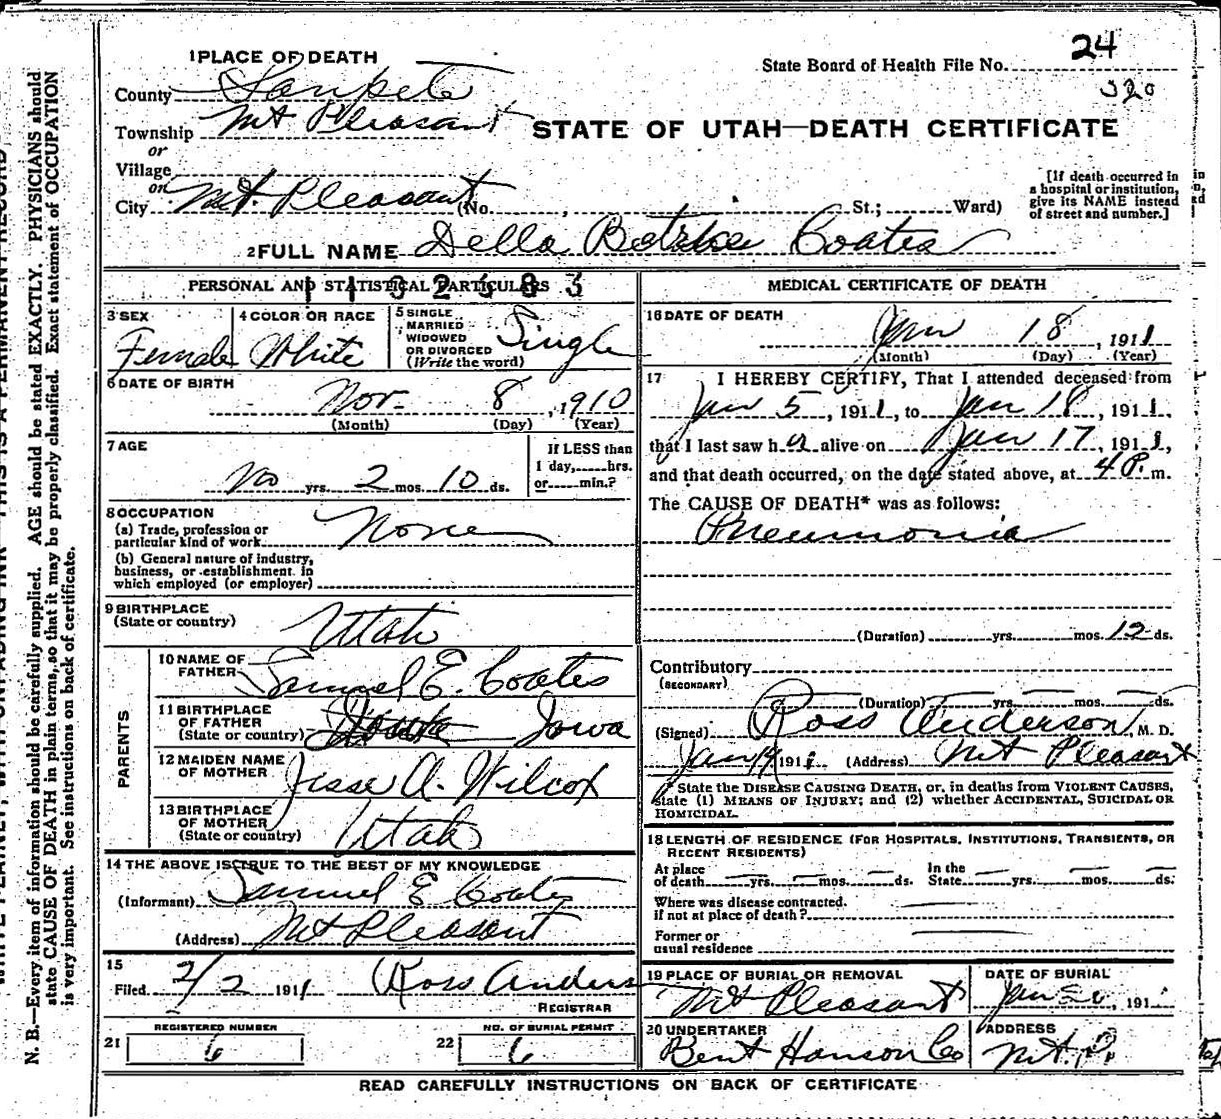 1 PLACE OF DEATH
State Board of Health File No. 24
320
County Sanpete
Township Mt Pleasant
STATE OF UTAH—DEATH CERTIFICATE
or
Village
or
City Mt. Pleasant (No. , St.; Ward)
[If death occurred in
a hospital or institution,
give its NAME instead
of street and number.]
2 FULL NAME Della Coates
PERSONAL AND STATISTICAL PARTICULARS
1132583
3 SEX
Female
4 COLOR OR RACE
White
5 SINGLE
MARRIED
WIDOWED
OR DIVORCED
(Write the word)
Single
6 DATE OF BIRTH
Nov. 8, 1910
(Month) (Day) (Year)
7 AGE
No yrs. 2 mos. 10 ds.
If LESS than
1 day, hrs.
or min.?
8 OCCUPATION
(a) Trade, profession or
particular kind of work None
(b) General nature of industry,
business, or establishment in
which employed (or employer)
9 BIRTHPLACE
(State or country)
Utah
PARENTS
10 NAME OF
FATHER
Samuel E. Coates
11 BIRTHPLACE
OF FATHER
(State or country) Iowa
12 MAIDEN NAME
OF MOTHER
Jesse A. Wilcox
13 BIRTHPLACE
OF MOTHER
(State or country)
Utah
14 THE ABOVE IS TRUE TO THE BEST OF MY KNOWLEDGE
(Informant) Samuel E Coates
(Address) Mt Pleasant
15
Filed 2/2 1911 Ross Anders
REGISTRAR
REGISTERED NUMBER
21 6
NO. OF BURIAL PERMIT
22 6
MEDICAL CERTIFICATE OF DEATH
16 DATE OF DEATH
Jan 18, 1911
(Month) (Day) (Year)
17 I HEREBY CERTIFY, That I attended deceased from
Jan 5, 1911, to Jan 18, 1911,
that I last saw her alive on Jan 17, 1911,
and that death occurred, on the date stated above, at 4 P. m.
The CAUSE OF DEATH* was as follows:
Pneumonia
(Duration) yrs. mos. 12 ds.
Contributory
(SECONDARY)
(Duration) yrs. mos. ds.
(Signed) Ross Anderson, M. D.
Jan 19 1911. (Address) Mt Pleasant
* State the DISEASE CAUSING DEATH, or, in deaths from VIOLENT CAUSES,
state (1) MEANS OF INJURY; and (2) whether ACCIDENTAL, SUICIDAL OR
HOMICIDAL.
18 LENGTH OF RESIDENCE (FOR HOSPITALS, INSTITUTIONS, TRANSIENTS, OR
RECENT RESIDENTS)
At place
of death yrs. mos. ds.
In the
State yrs. mos. ds.
Where was disease contracted,
if not at place of death?
Former or
usual residence
19 PLACE OF BURIAL OR REMOVAL
Mt Pleasant
DATE OF BURIAL
Jan 20, 191
20 UNDERTAKER
Bent Hanson Co
ADDRESS
Mt. P.
READ CAREFULLY INSTRUCTIONS ON BACK OF CERTIFICATE
N. B.—Every item of information should be carefully supplied. AGE should be stated EXACTLY. PHYSICIANS should
state CAUSE OF DEATH in plain terms, so that it may be properly classified. Exact statement of OCCUPATION
is very important. See instructions on back of certificate.